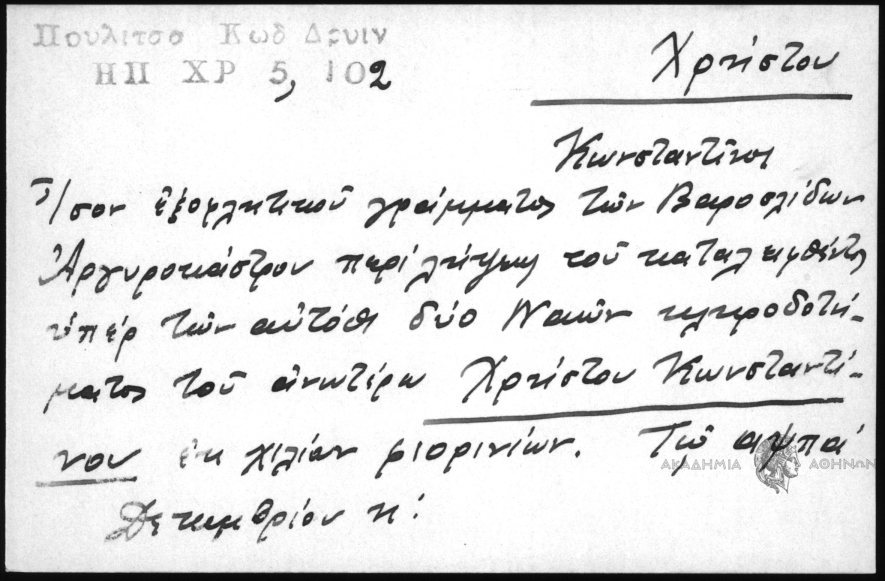 Πουλιτσα Κωδ Δρυιν
ΗΠ ΧΡ 5, 102
Χρήστου
Κωνσταντῖνος
Ἴσον ἐξοφλητικοῦ γράμματος τῶν Βαροσλίδων
Ἀργυροκάστρου περὶ λήψεως τοῦ καταλειφθέντος
ὑπὲρ τῶν αὐτόθι δύο Ναῶν κληροδοτή-
ματος τοῦ ἀνωτέρω Χρήστου Κωνσταντί-
νου ἐκ χιλίων φιορινίων. Τῷ αψπά
Δεκεμβρίου κ΄.
ΑΚΑΔΗΜΙΑ ΑΘΗΝΩΝ